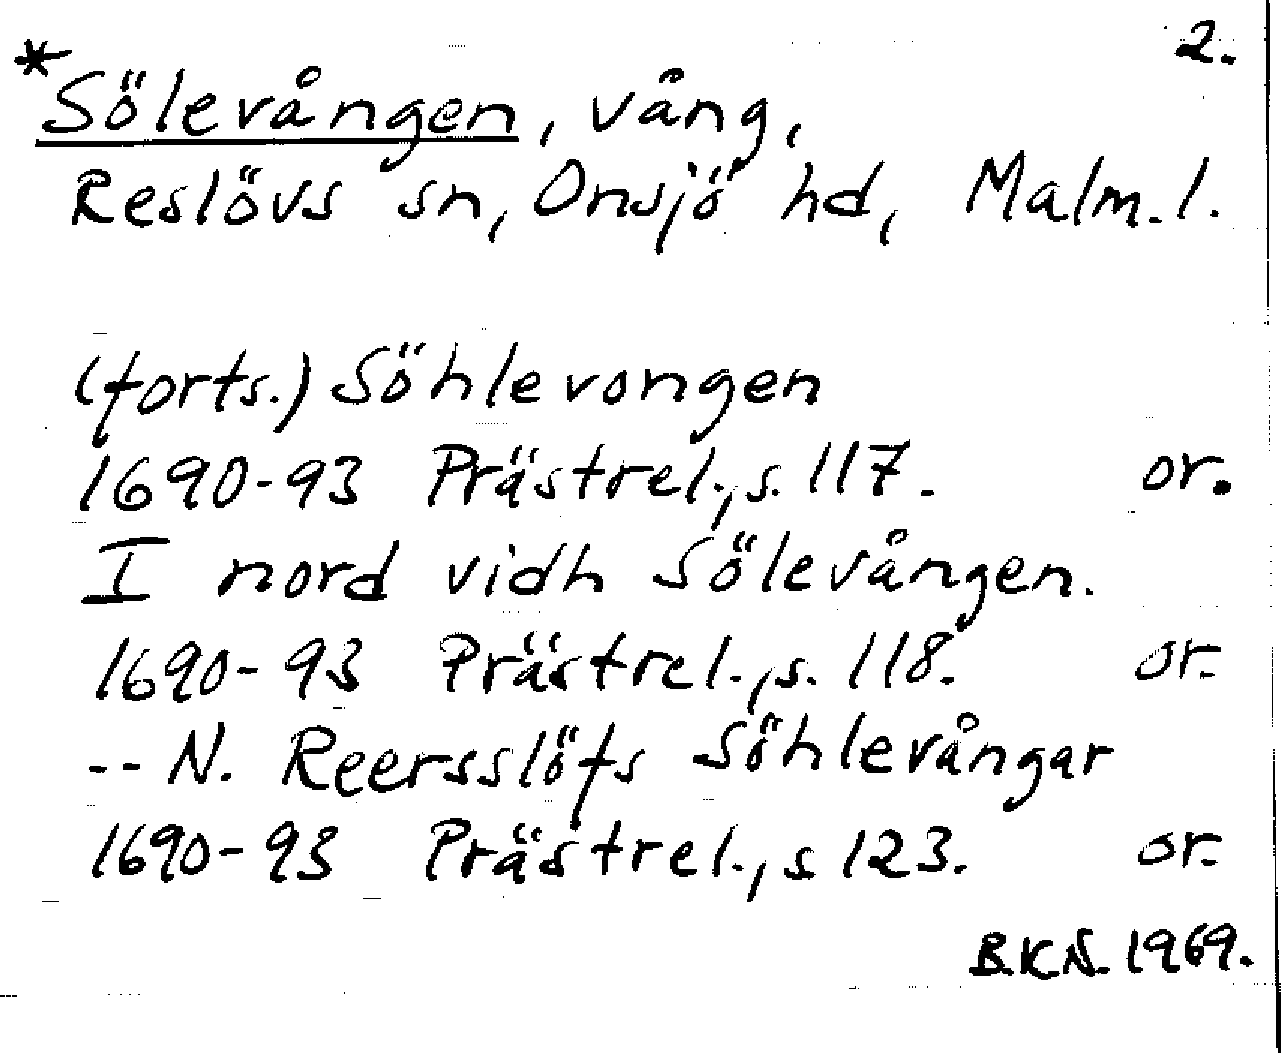 2.
*Sölevången, vång,
Reslövs sn, Onsjö hd, Malm. l.
(forts.) Söhlevongen
1690-93 Prästrel., s. 117. or.
I nord vidh Sölevången.
1690-93 Prästrel., s. 118. or.
-- N. Reersslöfs Söhlevångar
1690-93 Prästrel., s 123. or.
B.K.N. 1969.